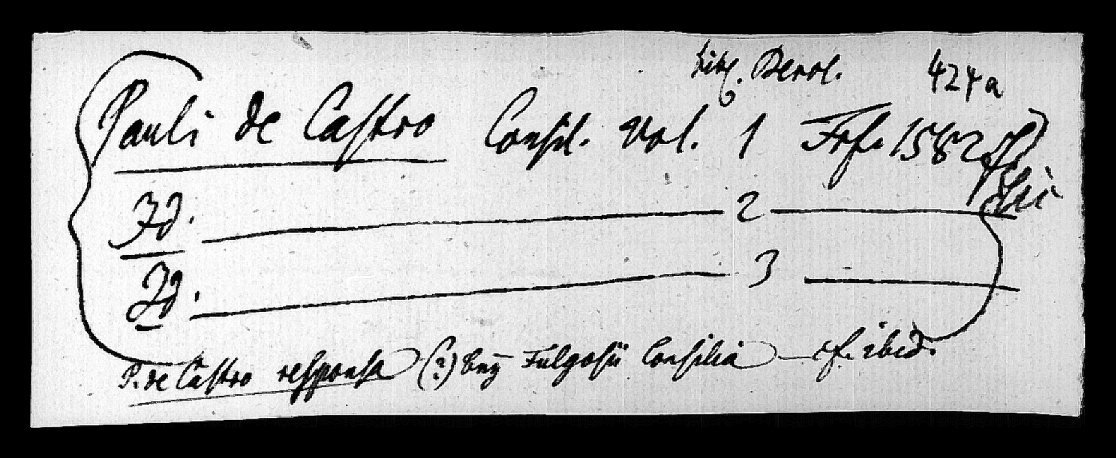 Bibl. Berol. 424a
Pauli de Castro Consil. Vol. 1 Frf. 1582 f.
Id. 2
Id. 3
P. de Castro responsa (?) bey Fulgosii Consilia cf. ibid.